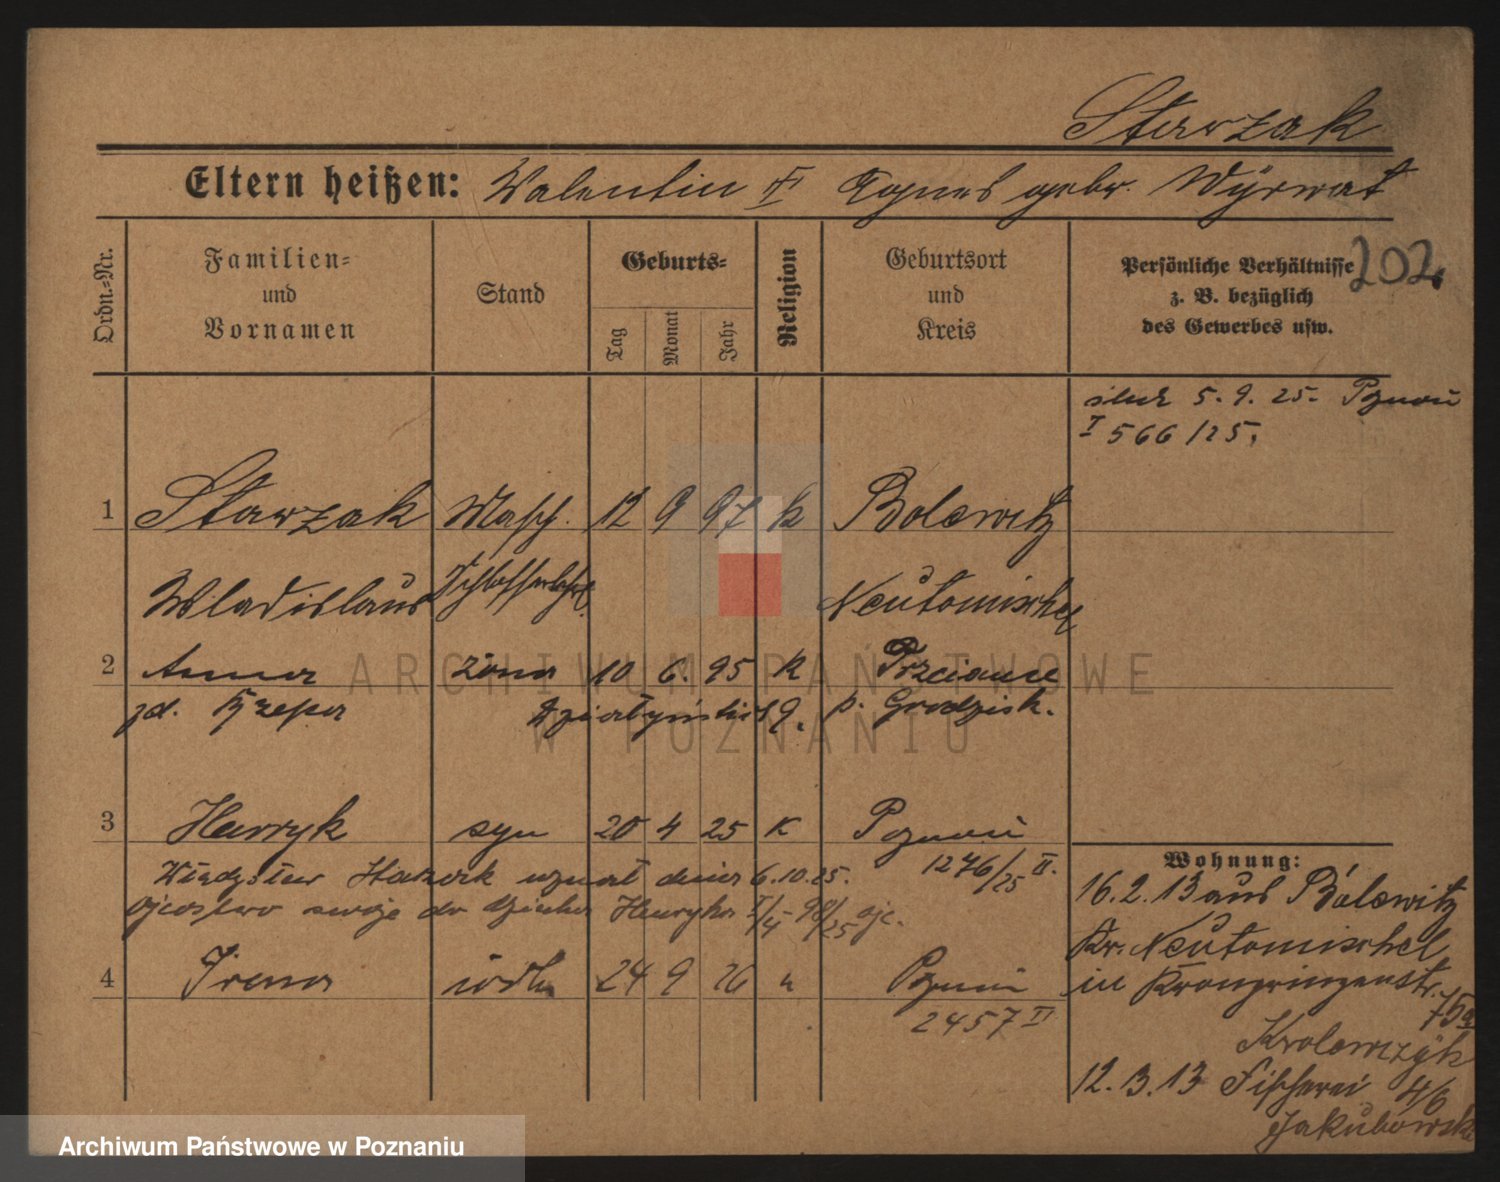 Starzak
Eltern heißen: Valentin Agnes gebr. Wyrwat
Ordn.-Nr.
Familien- und Vornamen
Stand
Geburts-
Tag
Monat
Jahr
Religion
Geburtsort und Kreis
Persönliche Verhältnisse z. B. bezüglich des Gewerbes usw.
202
5. 9. 25. Poznań
I 566/25.
1 Starzak Masch. 12 9 97 k Bolewitz
Wladislaus Neutomischel
2 Anna żona 10 6. 95 k
zd. Rzepa Działyńskich 9. p. Grodzisk.
3 Henryk syn 20 4 25 K Poznań
1276/25 II.
Starzak uznał dnia 6.10.25.
ojcostwo swoje do dziecka Henryka
4 Irena 24 9 26 " Poznań
2457 II
Wohnung:
16.2.13 aus Bolewitz
Kr. Neutomischel
in Kronprinzenstr.
75a
Krolewczyk
12.3.13 Fischerei 4/6
Jakubowski
ARCHIWUM PAŃSTWOWE
W POZNANIU
Archiwum Państwowe w Poznaniu